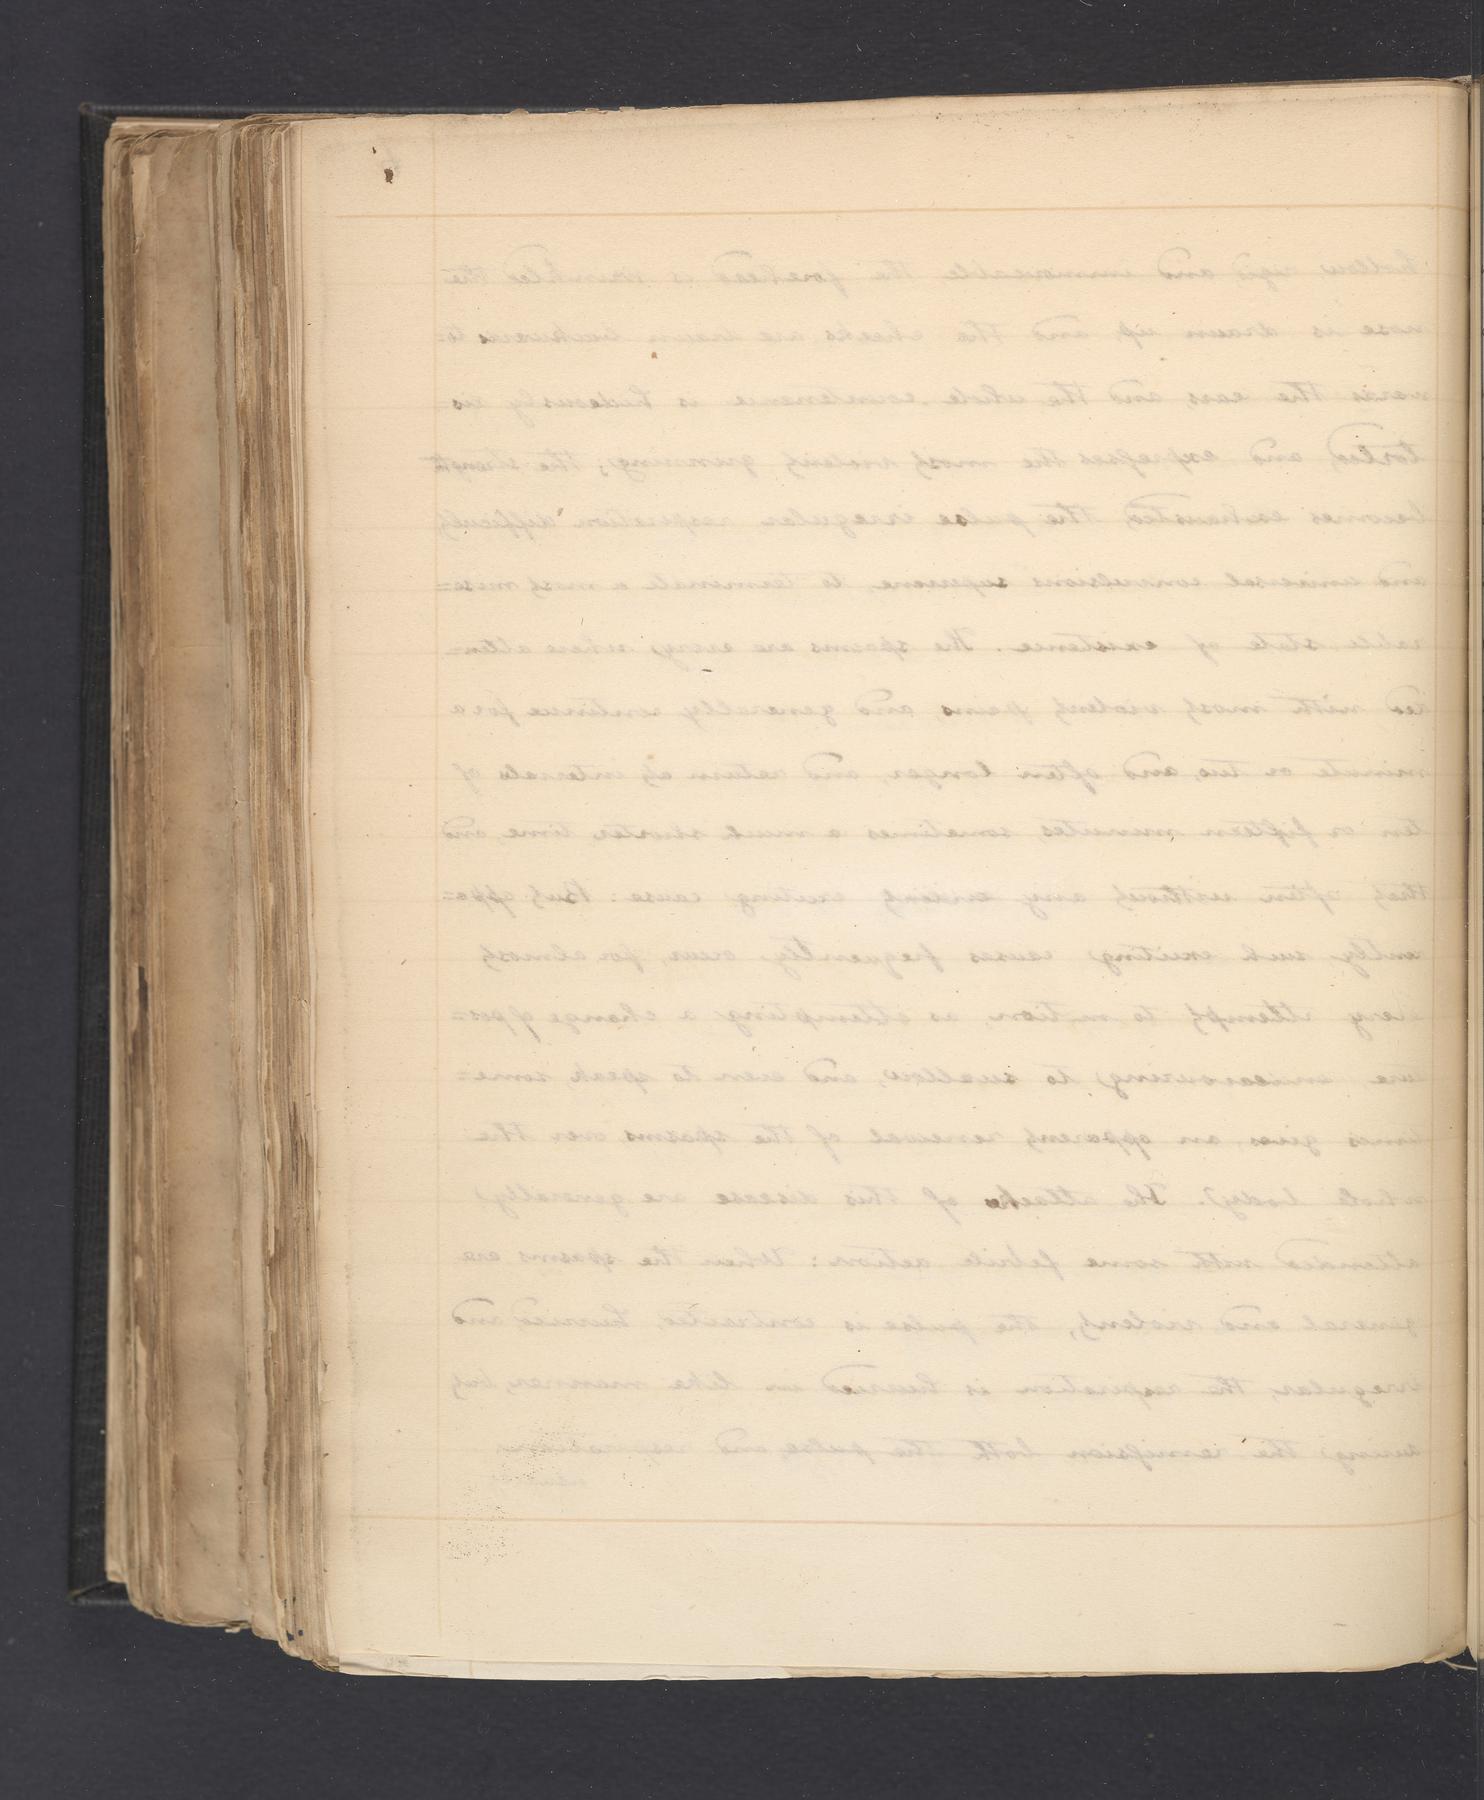 hollow rigid and immoveable the forehead is wrinkled the
nose is drawn up, and the cheeks are drawn backwards to=
wards the ears, and the whole countenance is hideously dis
torted, and expresses the most violent grinning; the strength
becomes exhausted, the pulse irregular respiration difficult,
and universal convulsions supervene, to terminate a most mise=
rable state of existence. The spasms are every where atten=
ded with most violent pains, and generally continue for a
minute or two, and often longer, and return at intervals of
ten or fifteen minutes, sometimes a much shorter time, and
that often without any evident exciting cause: But appa=
ently such exciting causes frequently occur, for almost
every attempt to motion, as attempting a change of pos=
ture, endeavouring to swallow, and even to speak some=
times gives an apparent renewal of the spasms over the
whole body. The attacks of this disease are generally
attended with some febrile action: When the spasms are
general and violent, the pulse is contracted, hurried and
irregular, the respiration is hurried in like manner, but
during the remission both the pulse and respiration